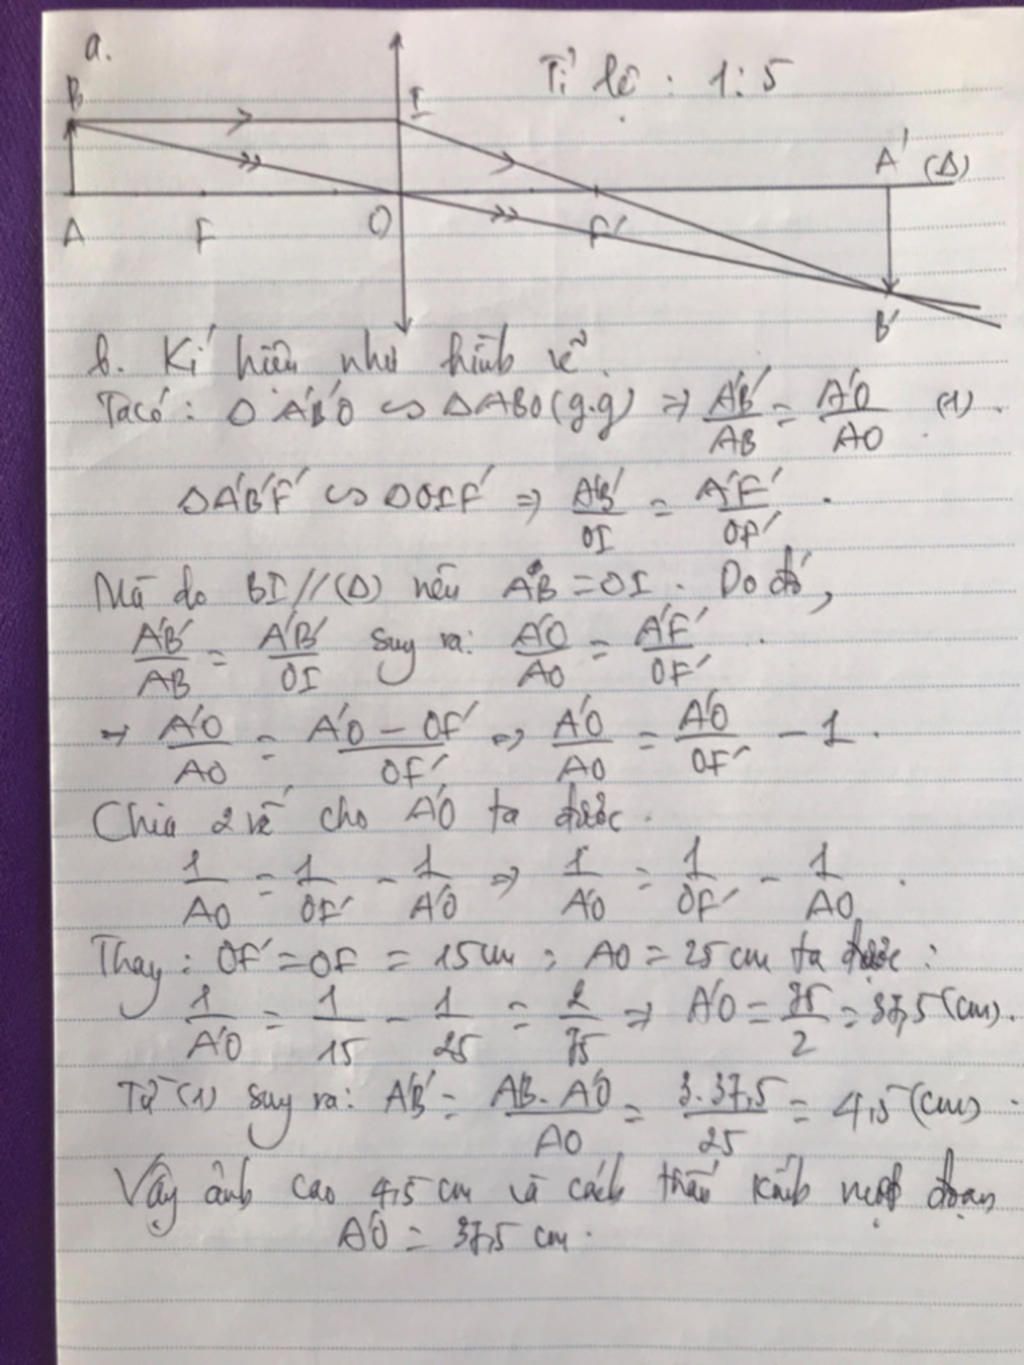 a.
Tỉ lệ : 1:5
B I
A' (Δ)
A F O F'
B'
b. Kí hiệu như hình vẽ.
Ta có: Δ A'B'O ∽ ΔABO (g.g) ⇒ A'B'/AB = A'O/AO (1).
ΔA'B'F' ∽ ΔOIF' ⇒ A'B'/OI = A'F'/OF'.
Mà do BI//(Δ) nên AB = OI. Do đó,
A'B'/AB = A'B'/OI suy ra: A'O/AO = A'F'/OF'.
⇒ A'O/AO = A'O - OF'/OF' ⇒ A'O/AO = A'O/OF' - 1.
Chia 2 vế cho A'O ta được.
1/AO = 1/OF' - 1/A'O ⇒ 1/A'O = 1/OF' - 1/AO.
Thay: OF' = OF = 15cm; AO = 25cm ta được:
1/A'O = 1/15 - 1/25 = 2/75 ⇒ A'O = 75/2 = 37,5 (cm).
Từ (1) suy ra: A'B' = AB. A'O/AO = 3.37,5/25 = 4,5 (cm).
Vậy ảnh cao 4,5 cm và cách thấu kính một đoạn
A'O = 37,5 cm.